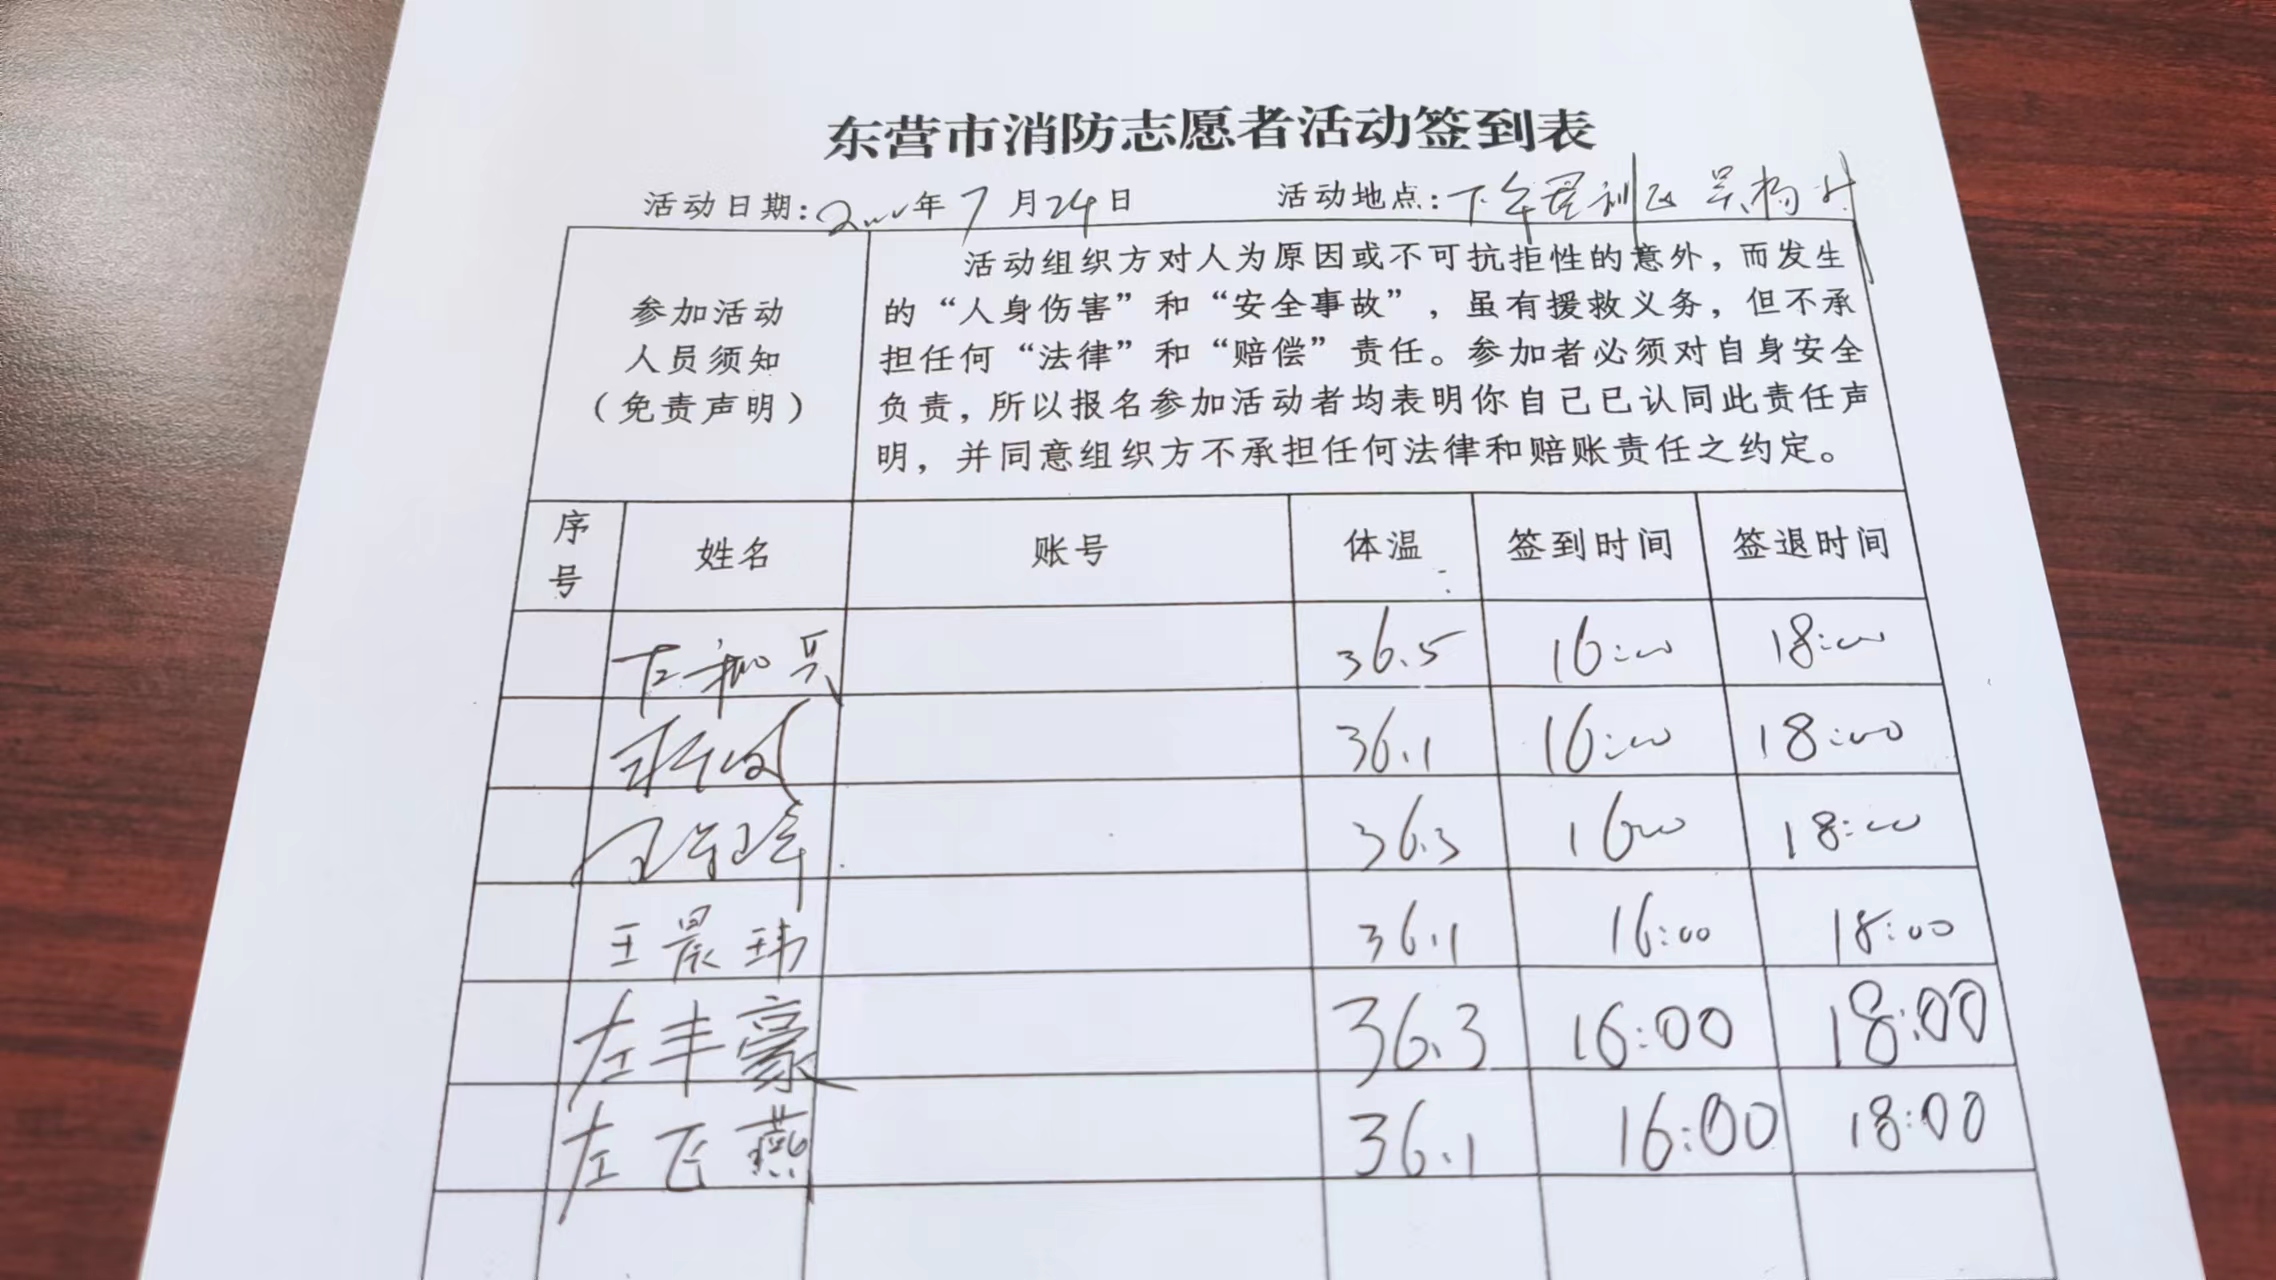 东营市消防志愿者活动签到表
活动日期: 年7月24日 活动地点:下午垦利区吴杨村
参加活动
人员须知
(免责声明)
活动组织方对人为原因或不可抗拒性的意外,而发生
的“人身伤害”和“安全事故”,虽有援救义务,但不承
担任何“法律”和“赔偿”责任。参加者必须对自身安全
负责,所以报名参加活动者均表明你自己已认同此责任声
明,并同意组织方不承担任何法律和赔账责任之约定。
序号 姓名 账号 体温 签到时间 签退时间
36.5 16:00 18:00
36.1 16:00 18:00
36.3 1600 18:00
王晨玮 36.1 16:00 18:00
左丰豪 36.3 16:00 18:00
左飞燕 36.1 16:00 18:00